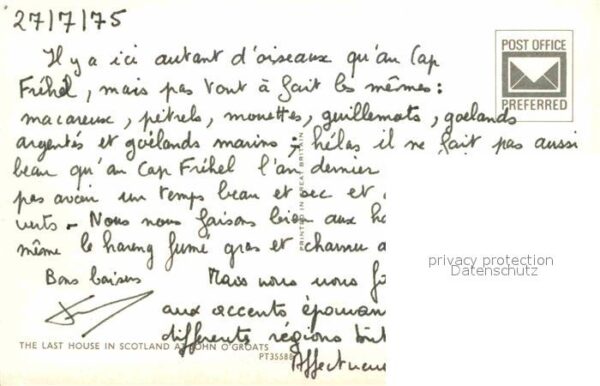 27/7/75
Il y a ici autant d'oiseaux qu'au Cap
Fréhel, mais pas tout à fait les mêmes :
macareux, pétrels, mouettes, guillemots, goelands
argentés et goélands marins ; hélas il ne fait pas aussi
beau qu'au Cap Fréhel l'an dernier
pas avoir un temps beau et sec et
verts - Nous nous faisons bien aux
même le hareng fumé gras et charnu
Bons baisers
Mais nous nous
aux accents
différentes régions
Affectueu
POST OFFICE
PREFERRED
PRINTED IN GREAT BRITAIN
privacy protection
Datenschutz
THE LAST HOUSE IN SCOTLAND AT JOHN O'GROATS
PT35586